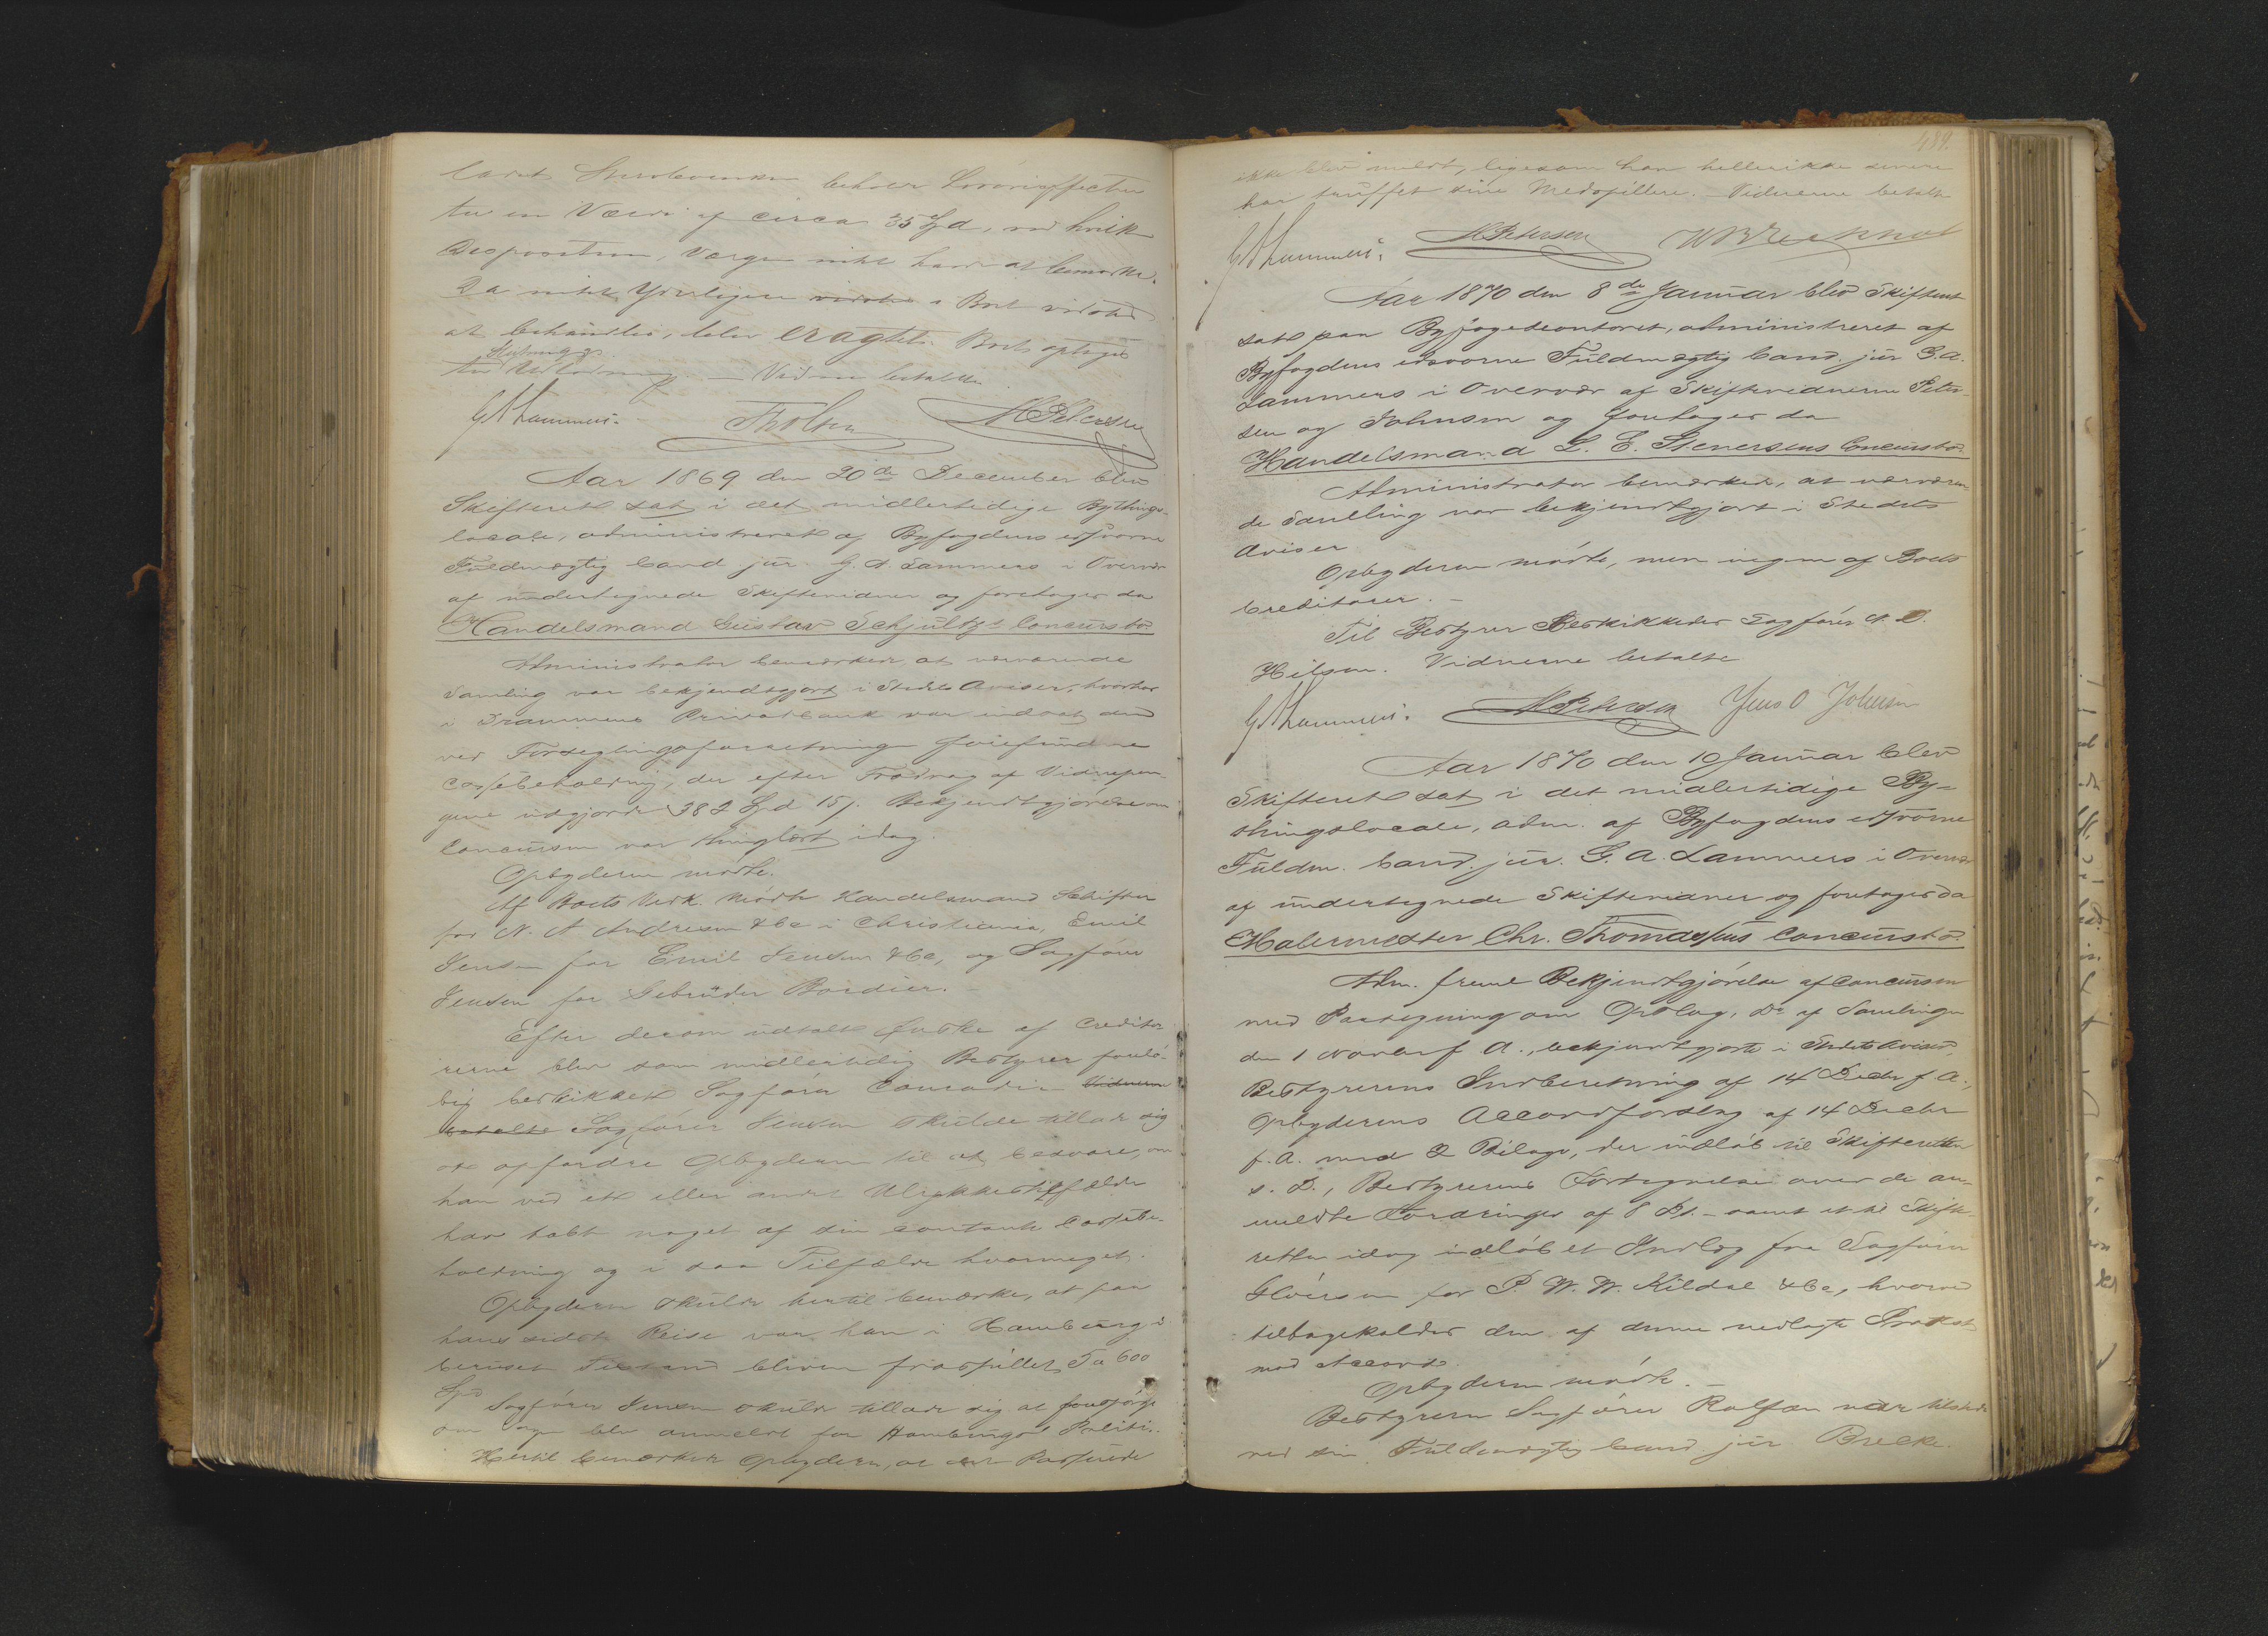 ladet Enkemanden beholde Løsøreeffecter
til en Værdi af circa 35 Spd, ved hvilken
Disposition, Værgen intet havde at bemærke.
Da intet Yderligere i Boet vidstes
at behandles, blev eragtet: Boet optages
til Slutning og Udlodning. — Vidnerne betalte.
G A Lammers. Th Olsen M Petersen
Aar 1869 den 20de December blev
Skifteret sat i det midlertidige Bythings-
locale, administreret af Byfogdens edsvorne
Fuldmægtig Cand. jur. G. A. Lammers i Overvær
af undertegnede Skiftevidner og foretages da
Handelsmand Gustav Schjultz's Concursbo.
Administrator bemærkede, at nærværende
Samling var bekjendtgjort i Stedets Aviser, hvorhos
i Drammens Privatbank var indsat den
ved Forseglingsforretningen forefundne
Cassebeholdning, der efter Fradrag af Vidnepen-
gene udgjorde 382 Spd 15 s. Bekjendtgjørelse om
Concursen var thinglæst idag.
Opbyderen mødte.
Af Boets Vedk. mødte Handelsmand Schiøtter
for N. A Andresen & Co i Christiania, Emil
Jensen for Emil Jensen & Co, og Sagfører
Jensen for Gebrüder Bordier. —
Efter derom udtalt Ønske af Credito-
rerne blev som midlertidig Bestyrer foreløbig
beskikket Sagfører Conradi. Vidnerne
betalte Sagfører Jensen skulde tillade sig
at opfordre Opbyderen til at besvare, om
han ved et eller andet Ulykkestilfælde
har tabt noget af sin contante Cassebe-
holdning og i saa Tilfælde hvormeget.
Opbyderen skulde hertil bemærke, at paa
hans sidste Reise var han i Hamburg i
beruset Tilstand bleven frastjållet Ca 600
Spd Sagfører Jensen skulde tillade sig at forespørge
om blev anmeldt for Hamburgs Politi.
Hertil bemærkede Opbyderen, at det Passerede
489.
ikke blev meldt, ligesom han heller ikke senere
har truffet sine Medspillere. — Vidnerne betalt
G A Lammers. M Petersen
Aar 1870 den 8de Januar blev Skifteret
sat paa Byfogedcontoret, administreret af
Byfogdens edsvorne Fuldmægtig Cand. jur G. A.
Lammers i Overvær af Skiftevidnerne Peter-
sen og Johnsen og foretages da
Handelsmand L. E. Stenersens Concursbo.
Administrator bemærkede, at nærværen-
de Samling var bekjendtgjort i Stedets
Aviser
Opbyderen mødte, men ingen af Boets
Creditorer. —
Til Bestyrer Beskikkedes Sagfører N. L.
Hilsen. Vidnerne betalte
G A Lammers. M Petersen Jens O Johnsen
Aar 1870 den 10 Januar blev
Skifteret sat i det midlertidige By-
thingslocale, adm. af Byfogdens edsvorne
Fuldm. Cand. jur. G. A. Lammers i Overvær
af undertegnede Skiftevidner og foretages da
Malermester Chr. Thomasens Concursbo.
Adm. freml. Bekjendtgjørelse af Concursen
med Paategning om Opslag, Do af Samlingen
den 1 Novbr f. A., bekjendtgjorte i Stedets Aviser,
Bestyrerens Indberetning af 14 Decbr f. A.,
Opbyderens Accordforslag af 14 Decbr
f. A. med 2 Bilage, der indløb til Skifteretten
s. D., Bestyrerens Fortegnelse over de an-
meldte Fordringer af 8 ds. — samt et til Skifte-
retten idag indløbet Indlæg fra Sagfører
Gløersen for P. W. W. Kildal & Co, hvorved
tilbagekaldes den af denne nedlagte Protest
mod Accord.
Opbyderen mødte. —
Bestyreren Sagfører Rolfsen var tilstede
ved sin Fuldmægtig Cand. jur Brecke.